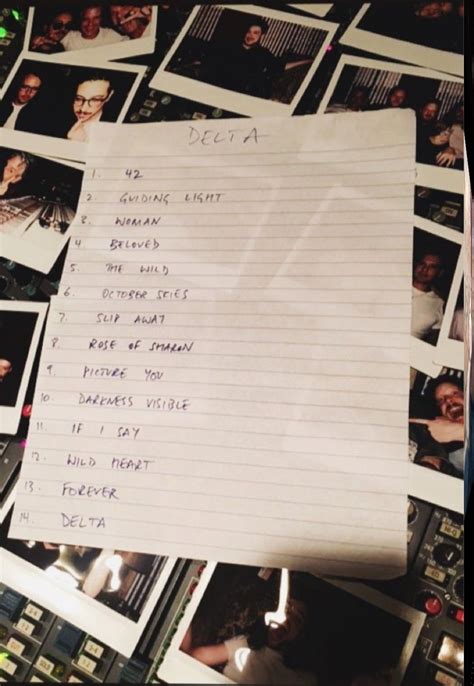 DELTA
1. 42
2 GUIDING LIGHT
3. WOMAN
4 BELOVED
5. THE WILD
6. OCTOBER SKIES
7. SLIP AWAY
8. ROSE OF SHARON
9. PICTURE YOU
10. DARKNESS VISIBLE
11. IF I SAY
12. WILD HEART
13. FOREVER
14. DELTA